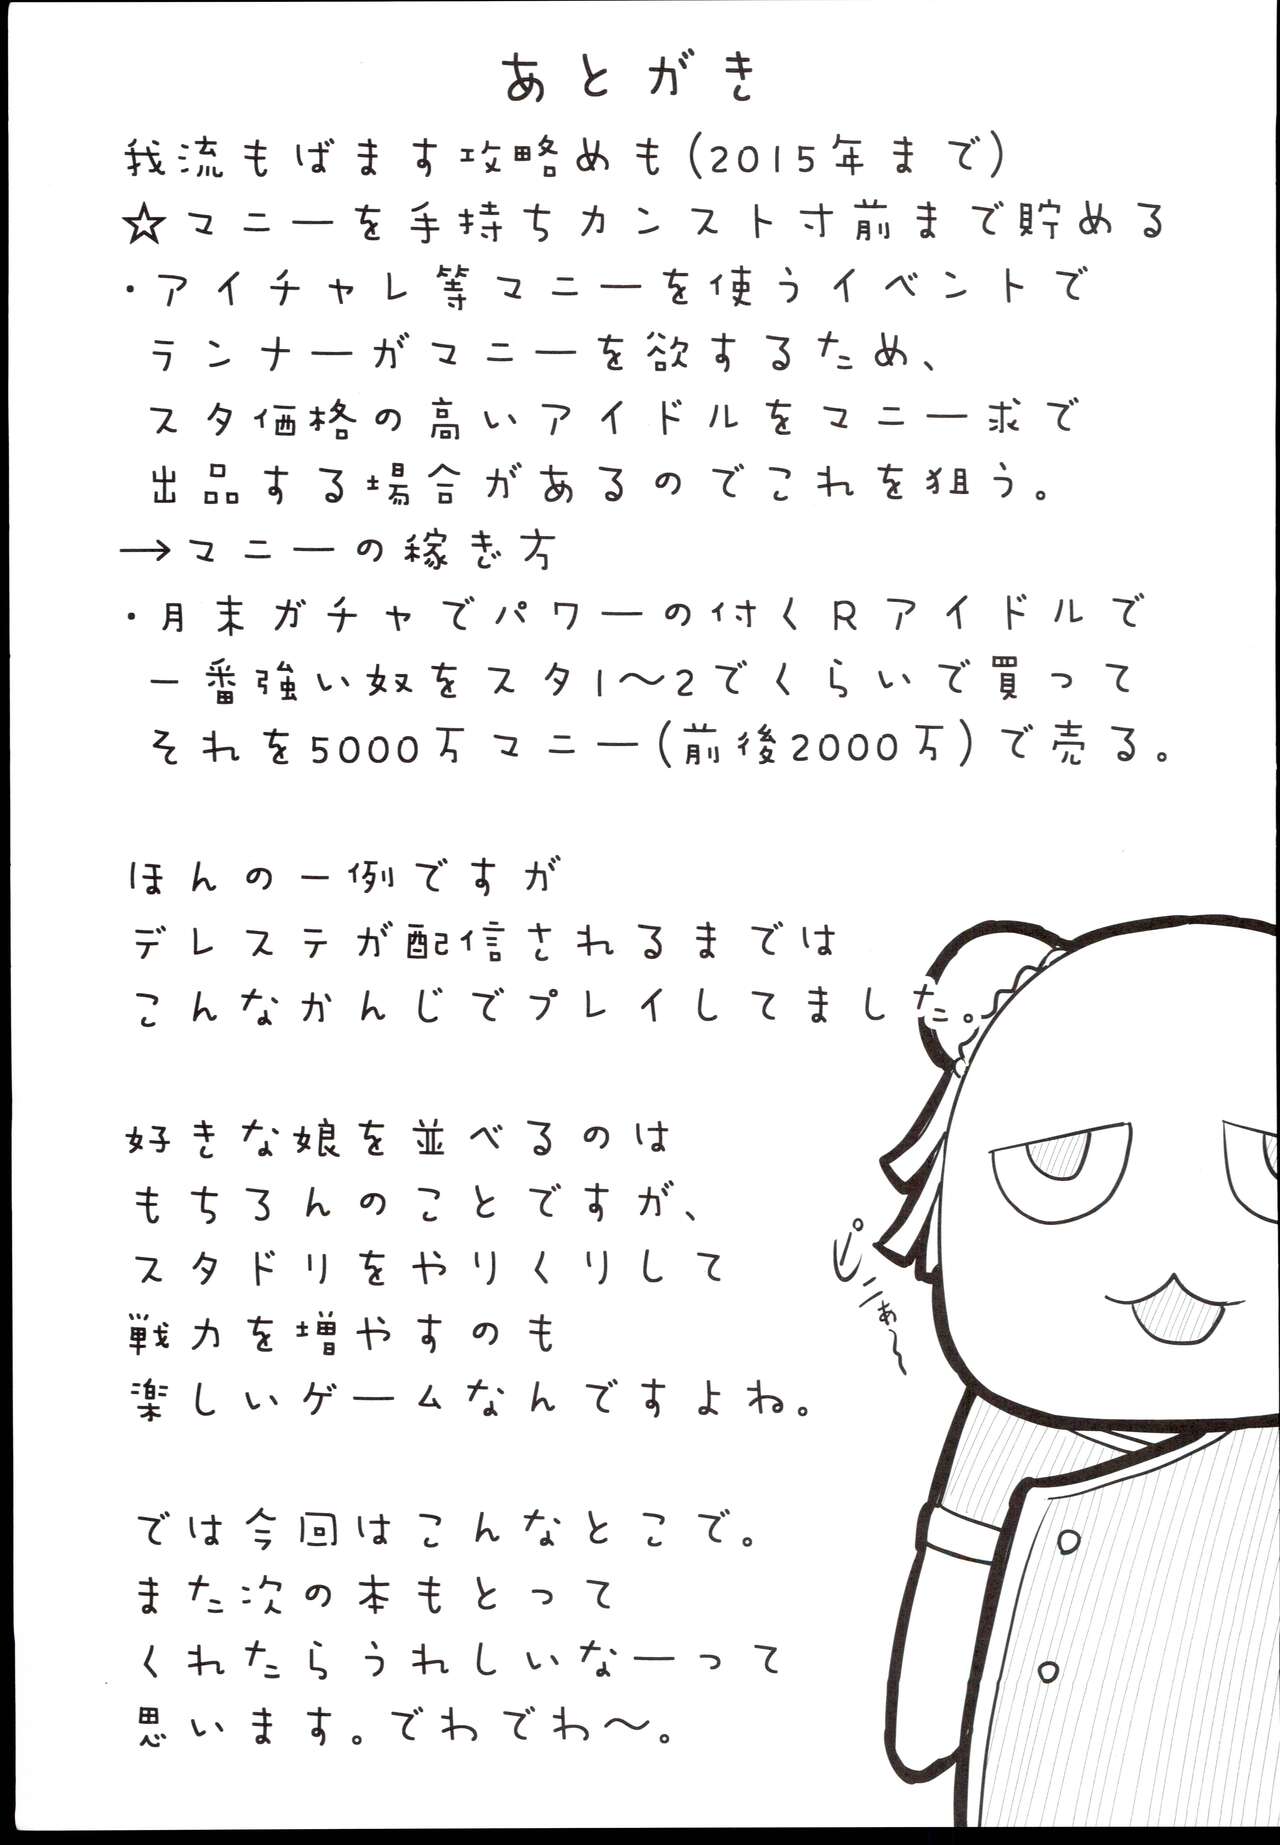 あとがき
我流もばます攻略めも(2015年まで)
☆マニーを手持ちカンスト寸前まで貯める
・アイチャレ等マニーを使うイベントで
ランナーがマニーを欲するため、
スタ価格の高いアイドルをマニー求で
出品する場合があるのでこれを狙う。
→マニーの稼ぎ方
・月末ガチャでパワーの付くRアイドルで
一番強い奴をスタ1〜2でくらいで買って
それを5000万マニー(前後2000万)で売る。
ほんの一例ですが
デレステが配信されるまでは
こんなかんじでプレイしてました。
好きな娘を並べるのは
もちろんのことですが、
スタドリをやりくりして
戦力を増やすのも
楽しいゲームなんですよね。
ぴにぁ〜
では今回はこんなとこで。
また次の本もとって
くれたらうれしいなーって
思います。でわでわ〜。